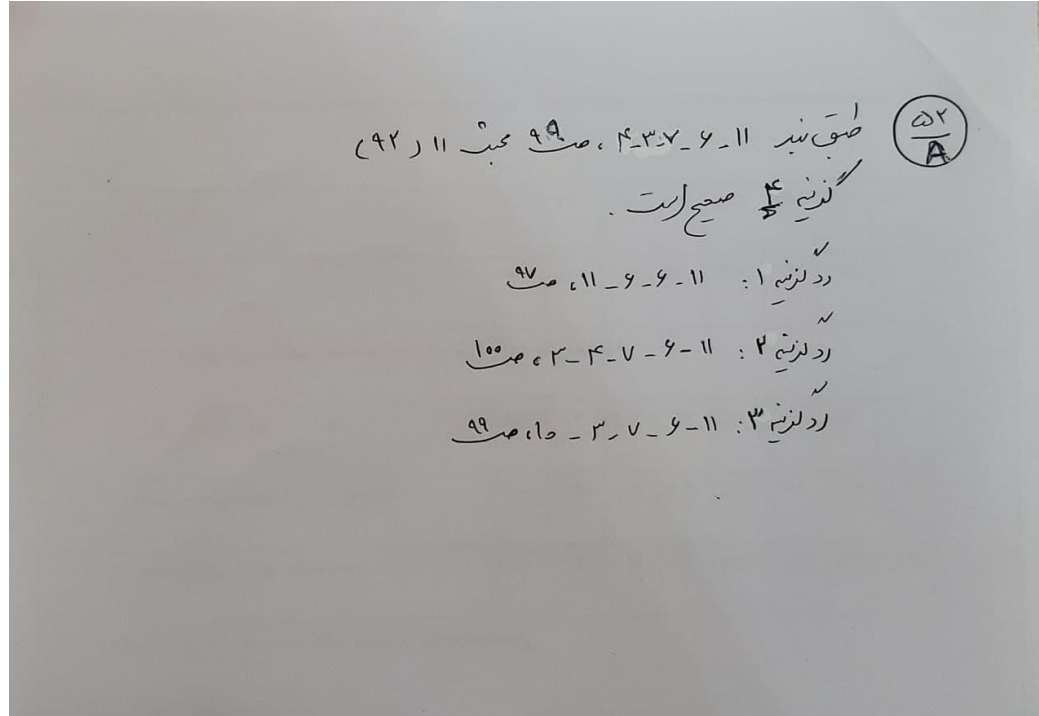 ۵۲
A
طبق بند ۱۱-۶-۷-۳-۴، ص ۹۹ مبحث ۱۱ (۹۲)
گزینه ۴ صحیح است.
رد گزینه ۱: ۱۱-۶-۶-۱۱، ص ۹۷
رد گزینه ۲: ۱۱-۶-۷-۴-۳، ص ۱۰۰
رد گزینه ۳: ۱۱-۶-۷-۳-۱۰، ص ۹۹